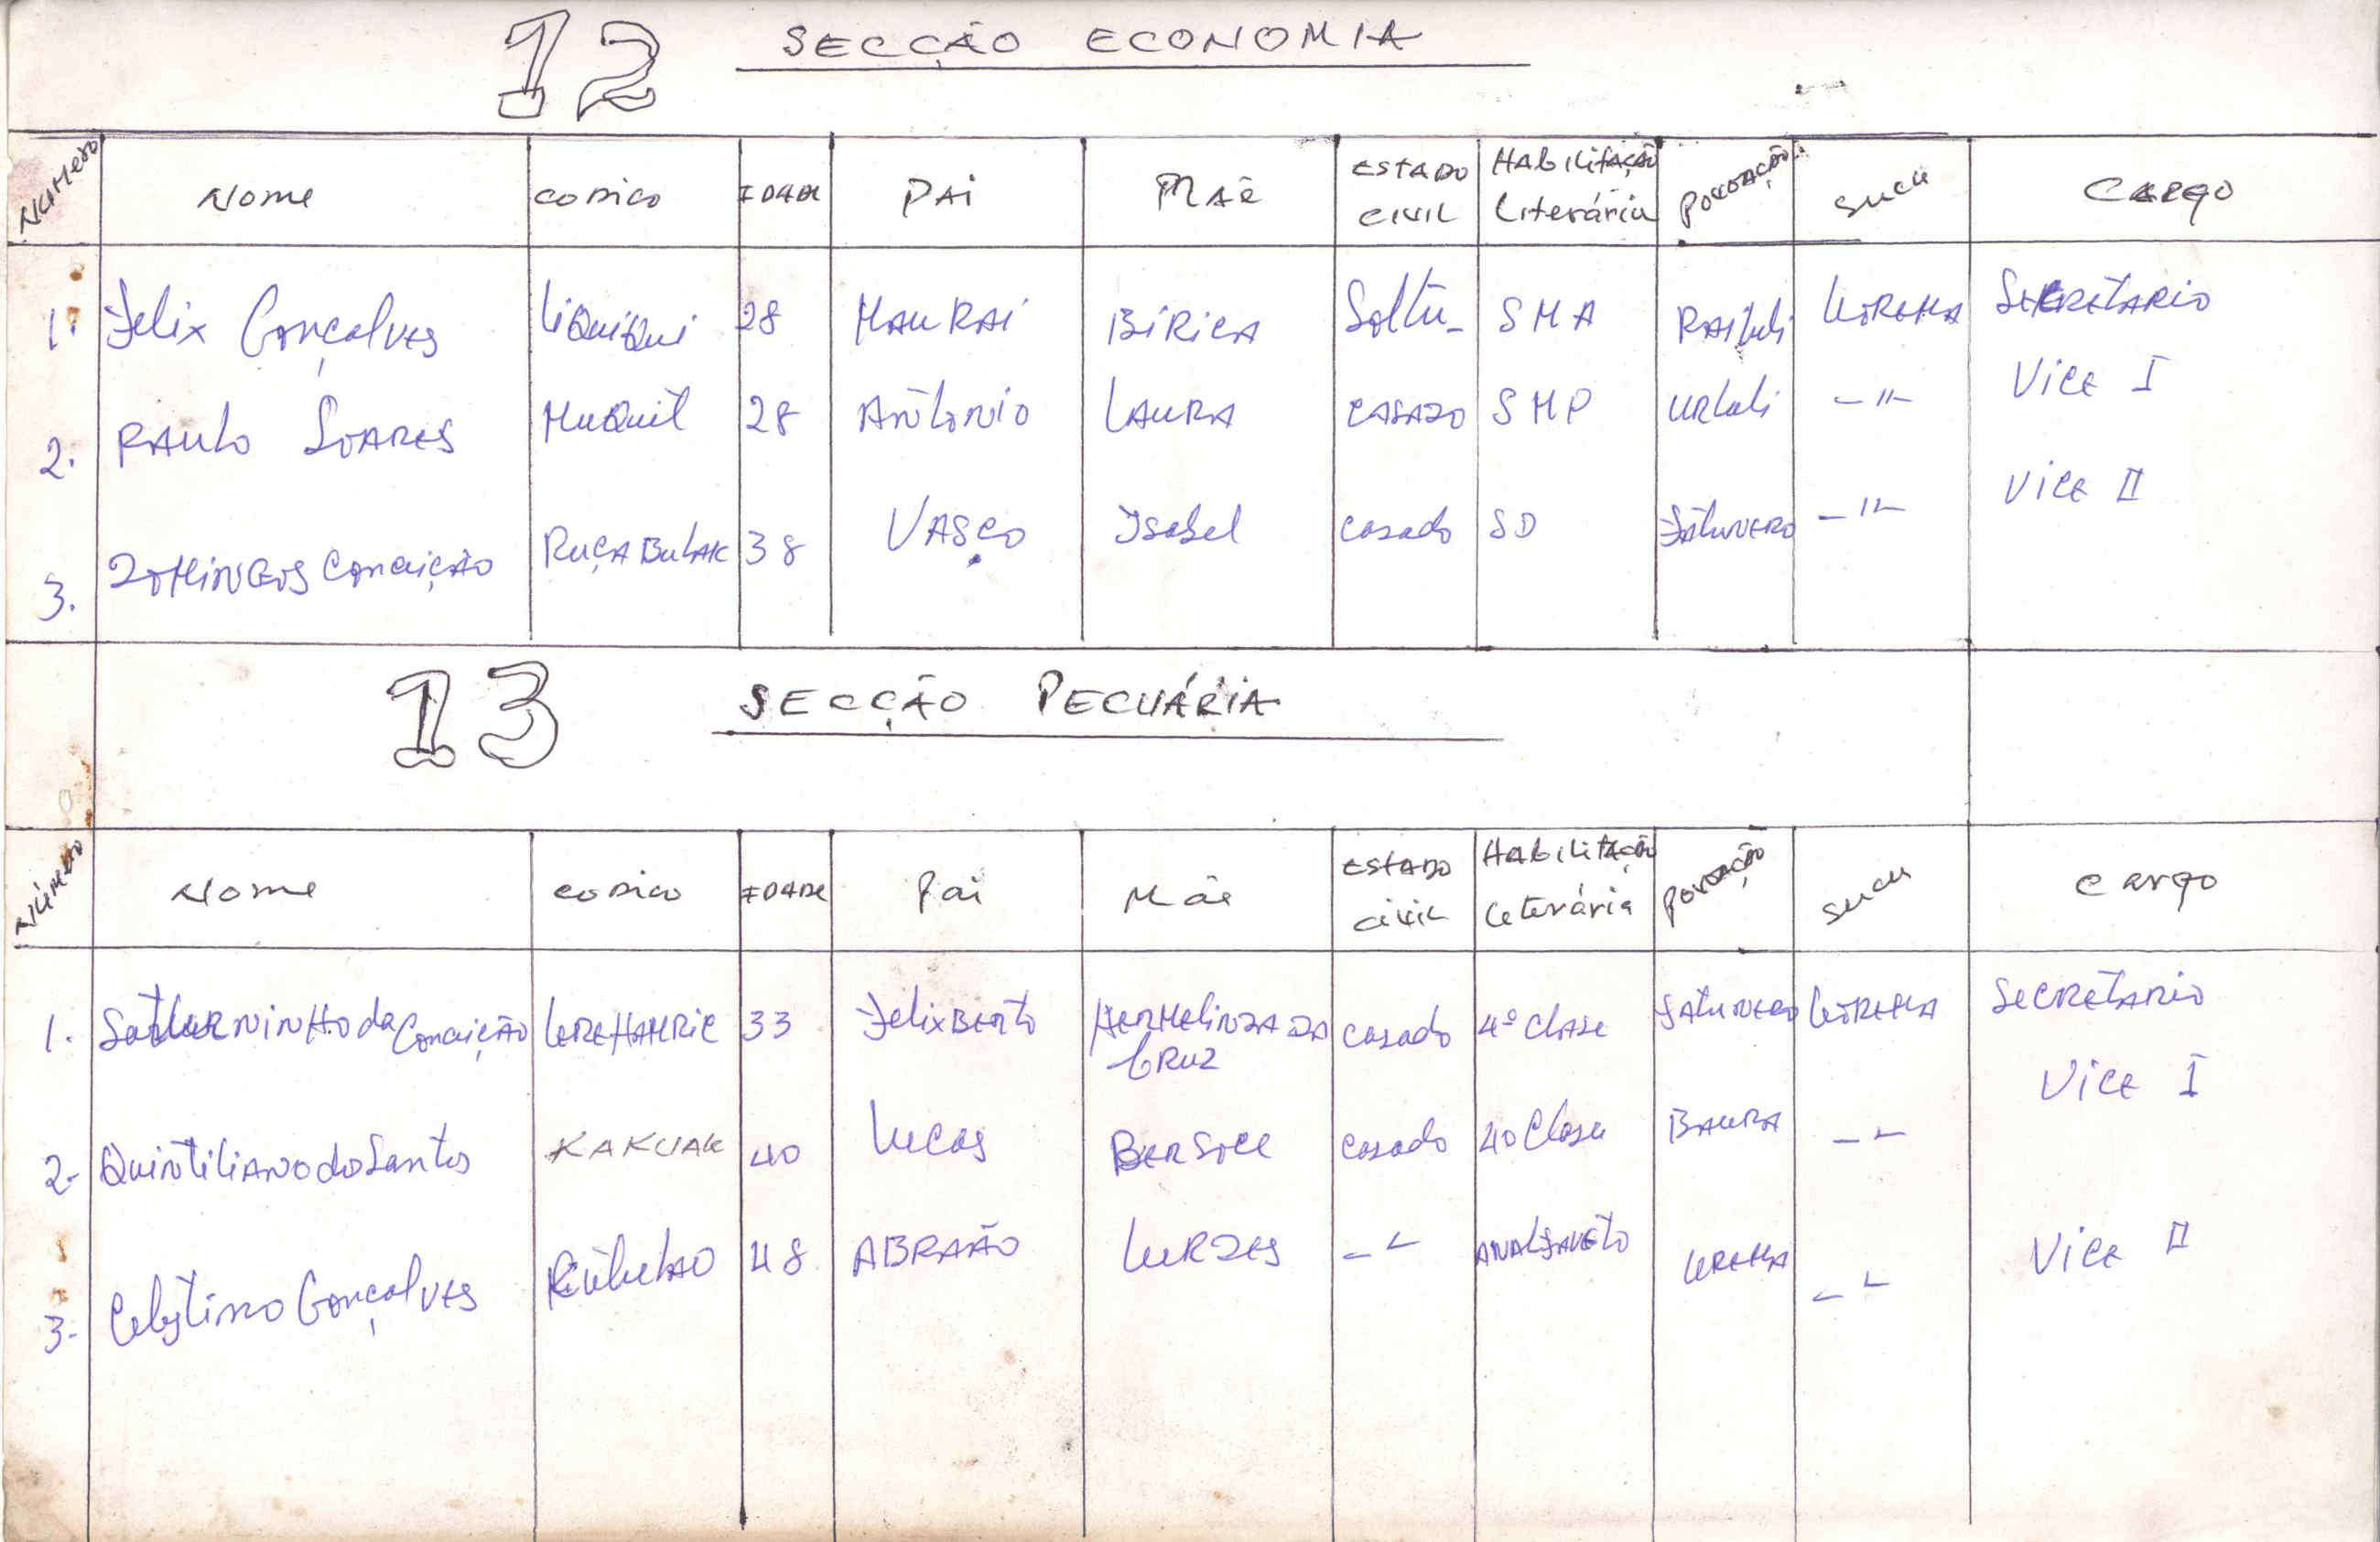 12 SECÇÃO ECONOMIA
NÚMERO Nome CODICO IDADE PAI MÃE ESTADO CIVIL HABILITAÇÃO Literária POVOAÇÃO SUCU CARGO
1. Felix Gonçalves LiQuiQui 28 MAURAI BiRiCA Soltu- SMA RAiluli LOREMA SECRETARIO
2. PAULO SOARES MuQuit 28 António LAURA CASADO SMP URluli -"- Vice I
3. DOMINGOS Conceição RuçABulAK 38 VASCO Isabel casado SD FATUVERO -"- Vice II
13 SECÇÃO PECUÁRIA
NÚMERO Nome CODICO IDADE Pai Mãe ESTADO CIVIL HABILITAÇÃO Leterária POVOAÇÃO SUCU Cargo
1. SATURNINHO da Conceição LEREHAHRIC 33 FelixBERTO HERMELINDA DA CRUZ casado 4º Clase FATUVERO LOREMA SECRETARIO
2- Quintiliano do Santos KAKUAK 40 Lucas BERSOCE casado 40 Clase BAURA -- Vice I
3- Celestino Gonçalves 48 ABRAÃO LURDES -- ANALFAVETO LEREMA -- Vice II